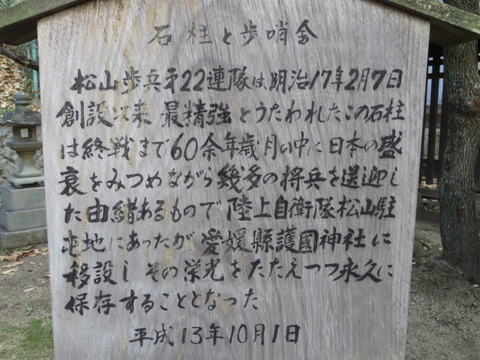 石柱と歩哨舎
松山歩兵才22連隊は、明治17年2月7日
創設以来 最精強とうたわれたこの石柱
は終戦まで60余年歳月の中に日本の盛
衰をみつめながら幾多の将兵を送迎し
た由緒あるもので、陸上自衛隊松山駐
屯地にあったが愛媛縣護國神社に
移設し その栄光をたたえつつ永久に
保存することとなった
平成13年10月1日